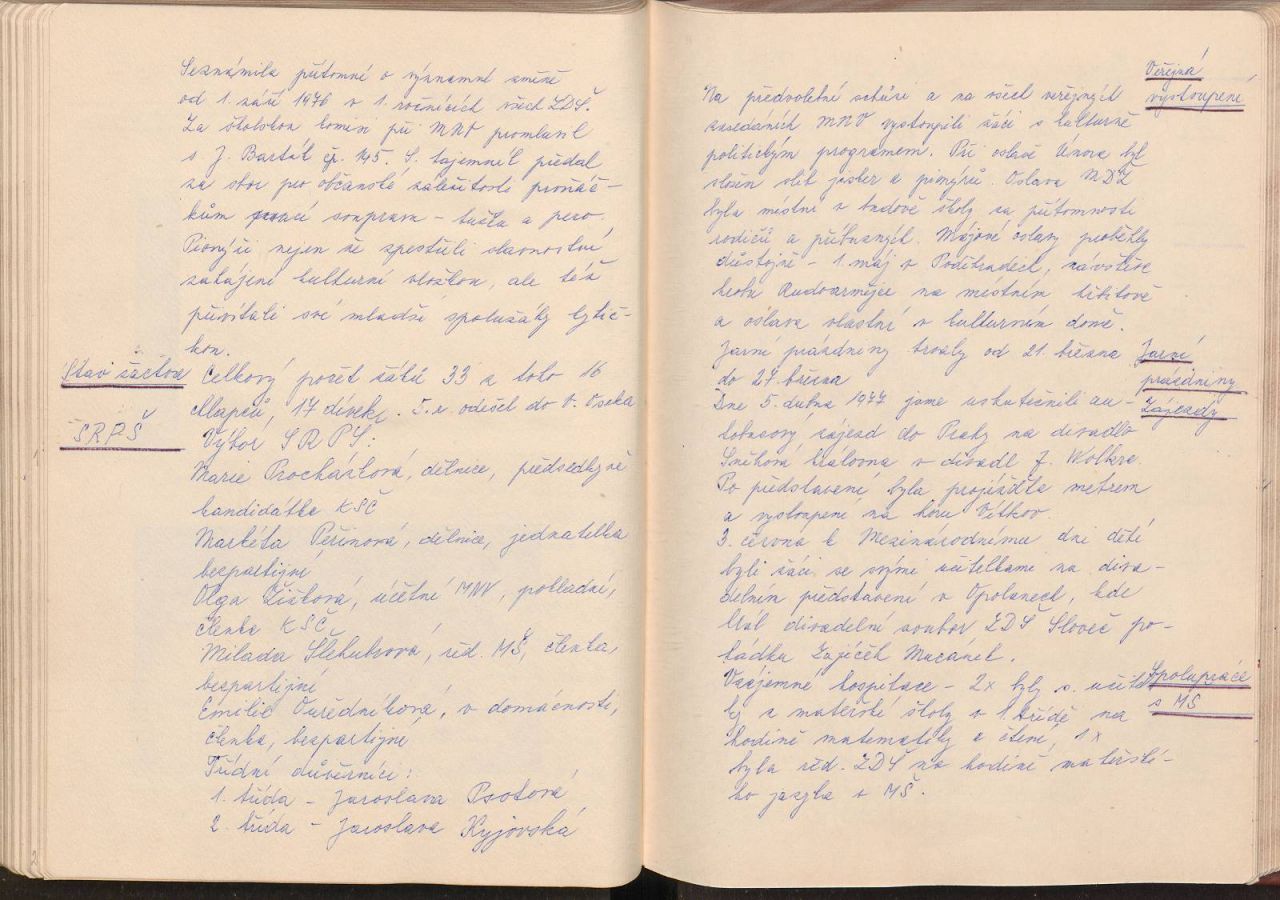 Seznámila přítomné o významné změně
od 1. září 1976 v 1. ročnících všech ZDŠ.
Za školskou komisi při MNV promluvil
s J. Barták čp. 145. S. tajemník předal
za sbor pro občanské záležitosti prvňáč-
kům psací soupravu - tužka a pero.
Pionýři nejen že zpestřili slavnostní
zahájení kulturní vložkou, ale též
přivítali své mladší spolužáky kytič-
kou.
Stav žactva
Celkový počet žáků 33 z toho 16
chlapců, 17 dívek. 5.r odešel do V. Oseka
SRPŠ
Výbor SRPŠ:
Marie Procházková, dělnice, předsedkyně
kandidátka KSČ
Markéta Peřinová, dělnice, jednatelka
bezpartijní
Olga Žižková, účetní MNV, pokladní,
členka KSČ
Milada Šlehubrová, řed. MŠ, členka,
bezpartijní
Emilie Ouředníková, v domácnosti,
členka, bezpartijní
Třídní důvěrníci:
1. třída - Jaroslava Psotová
2. třída - Jaroslava Kyjovská
Veřejná
vystoupení
Na předvolební schůzi a na všech veřejných
zasedáních MNV vystoupili žáci s kulturně
politickým programem. Při oslavě Února byl
složen slib jisker a pionýrů. Oslava MDŽ
byla místní v budově školy za přítomnosti
rodičů a příbuzných. Májové oslavy proběhly
důstojně - 1. máj v Poděbradech, návštěva
hrobu Rudoarmějce na místním hřbitově
a oslava vlastní v kulturním domě.
Jarní
prázdniny
Jarní prázdniny trvaly od 21. března
do 27. března
Zájezdy
Dne 5. dubna 1977 jsme uskutečnili au-
tobusový zájezd do Prahy na divadlo
Sněhová královna v divadle J. Wolkra.
Po představení byla projížďka metrem
a vystoupení na horu Vítkov
3. června k Mezinárodnímu dni dětí
byli žáci se svými učitelkami na diva-
delním představení v Opolanech, kde
hrál divadelní soubor ZDŠ Sloveč po-
hádku Zajíček Mucánek.
Spolupráce
s MŠ
Vzájemné hospitace - 2x byly s. učitel
ky z mateřské školy v 1. třídě na
hodině matematiky a čtení, 1x
byla řed. ZDŠ na hodině mateřské-
ho jazyka v MŠ.